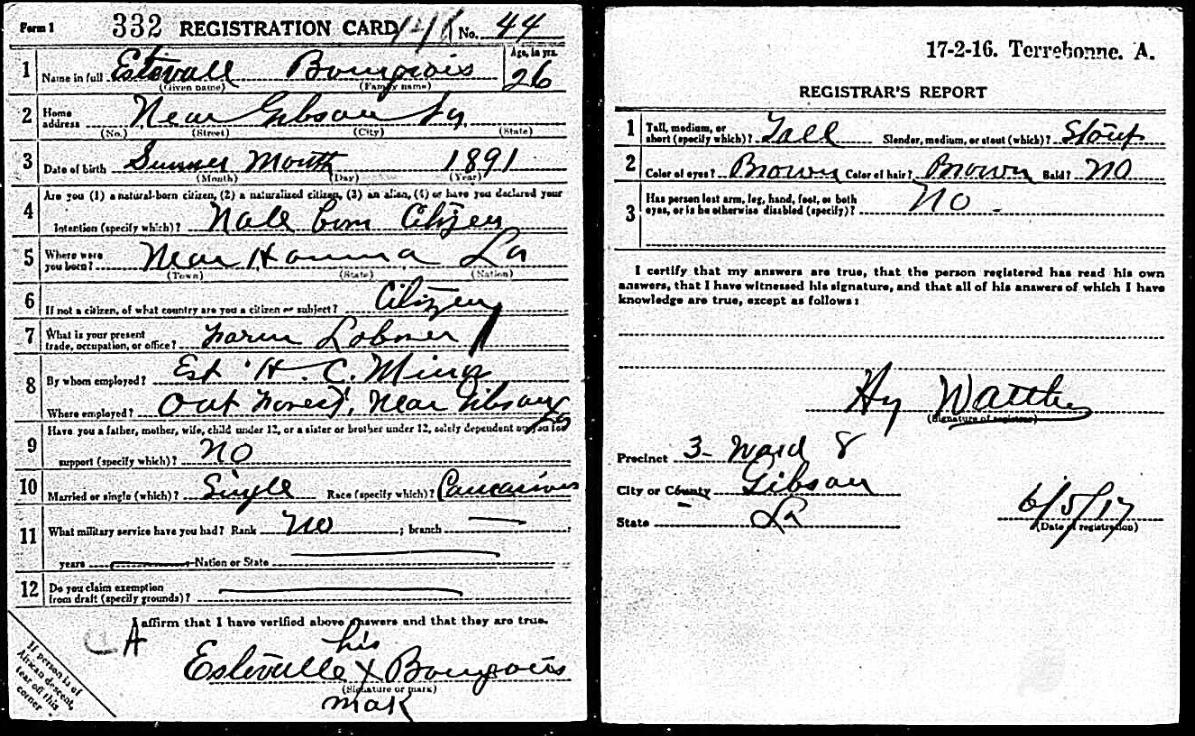 Form 1 332 REGISTRATION CARD No. 44
1 Name in full Estevall Bourgeois Age, in yrs. 26
(Given name) (Family name)
2 Home address Near Gibson La
(No.) (Street) (City) (State)
3 Date of birth Summer Month 1891
(Month) (Day) (Year)
4 Are you (1) a natural-born citizen, (2) a naturalized citizen, (3) an alien, (4) or have you declared your
intention (specify which)? Nale born Citizen
5 Where were you born? Near Houma La
(Town) (State) (Nation)
6 If not a citizen, of what country are you a citizen or subject? Citizen
7 What is your present trade, occupation, or office? Farm Laborer
8 By whom employed? Est H. C. Minor
Where employed? Oak Forest, Near Gibson La
9 Have you a father, mother, wife, child under 12, or a sister or brother under 12, solely dependent on you for
support (specify which)? No
10 Married or single (which)? Single Race (specify which)? Caucasian
11 What military service have you had? Rank No ; branch ;
years Nation or State
12 Do you claim exemption from draft (specify grounds)?
I affirm that I have verified above answers and that they are true.
A
his
Estevalle X Bourgeois
(Signature or mark)
mak
If person is of
African descent,
tear off this
corner
17-2-16. Terrebonne. A.
REGISTRAR'S REPORT
1 Tall, medium, or short (specify which)? Tall Slender, medium, or stout (which)? Stout
2 Color of eyes? Brown Color of hair? Brown Bald? No
3 Has person lost arm, leg, hand, foot, or both
eyes, or is he otherwise disabled (specify)? No.
I certify that my answers are true, that the person registered has read his own
answers, that I have witnessed his signature, and that all of his answers of which I have
knowledge are true, except as follows:
Hy
(Signature of registrar)
Precinct 3- Ward 8
City or County Gibson
State La
6/5/17
(Date of registration)